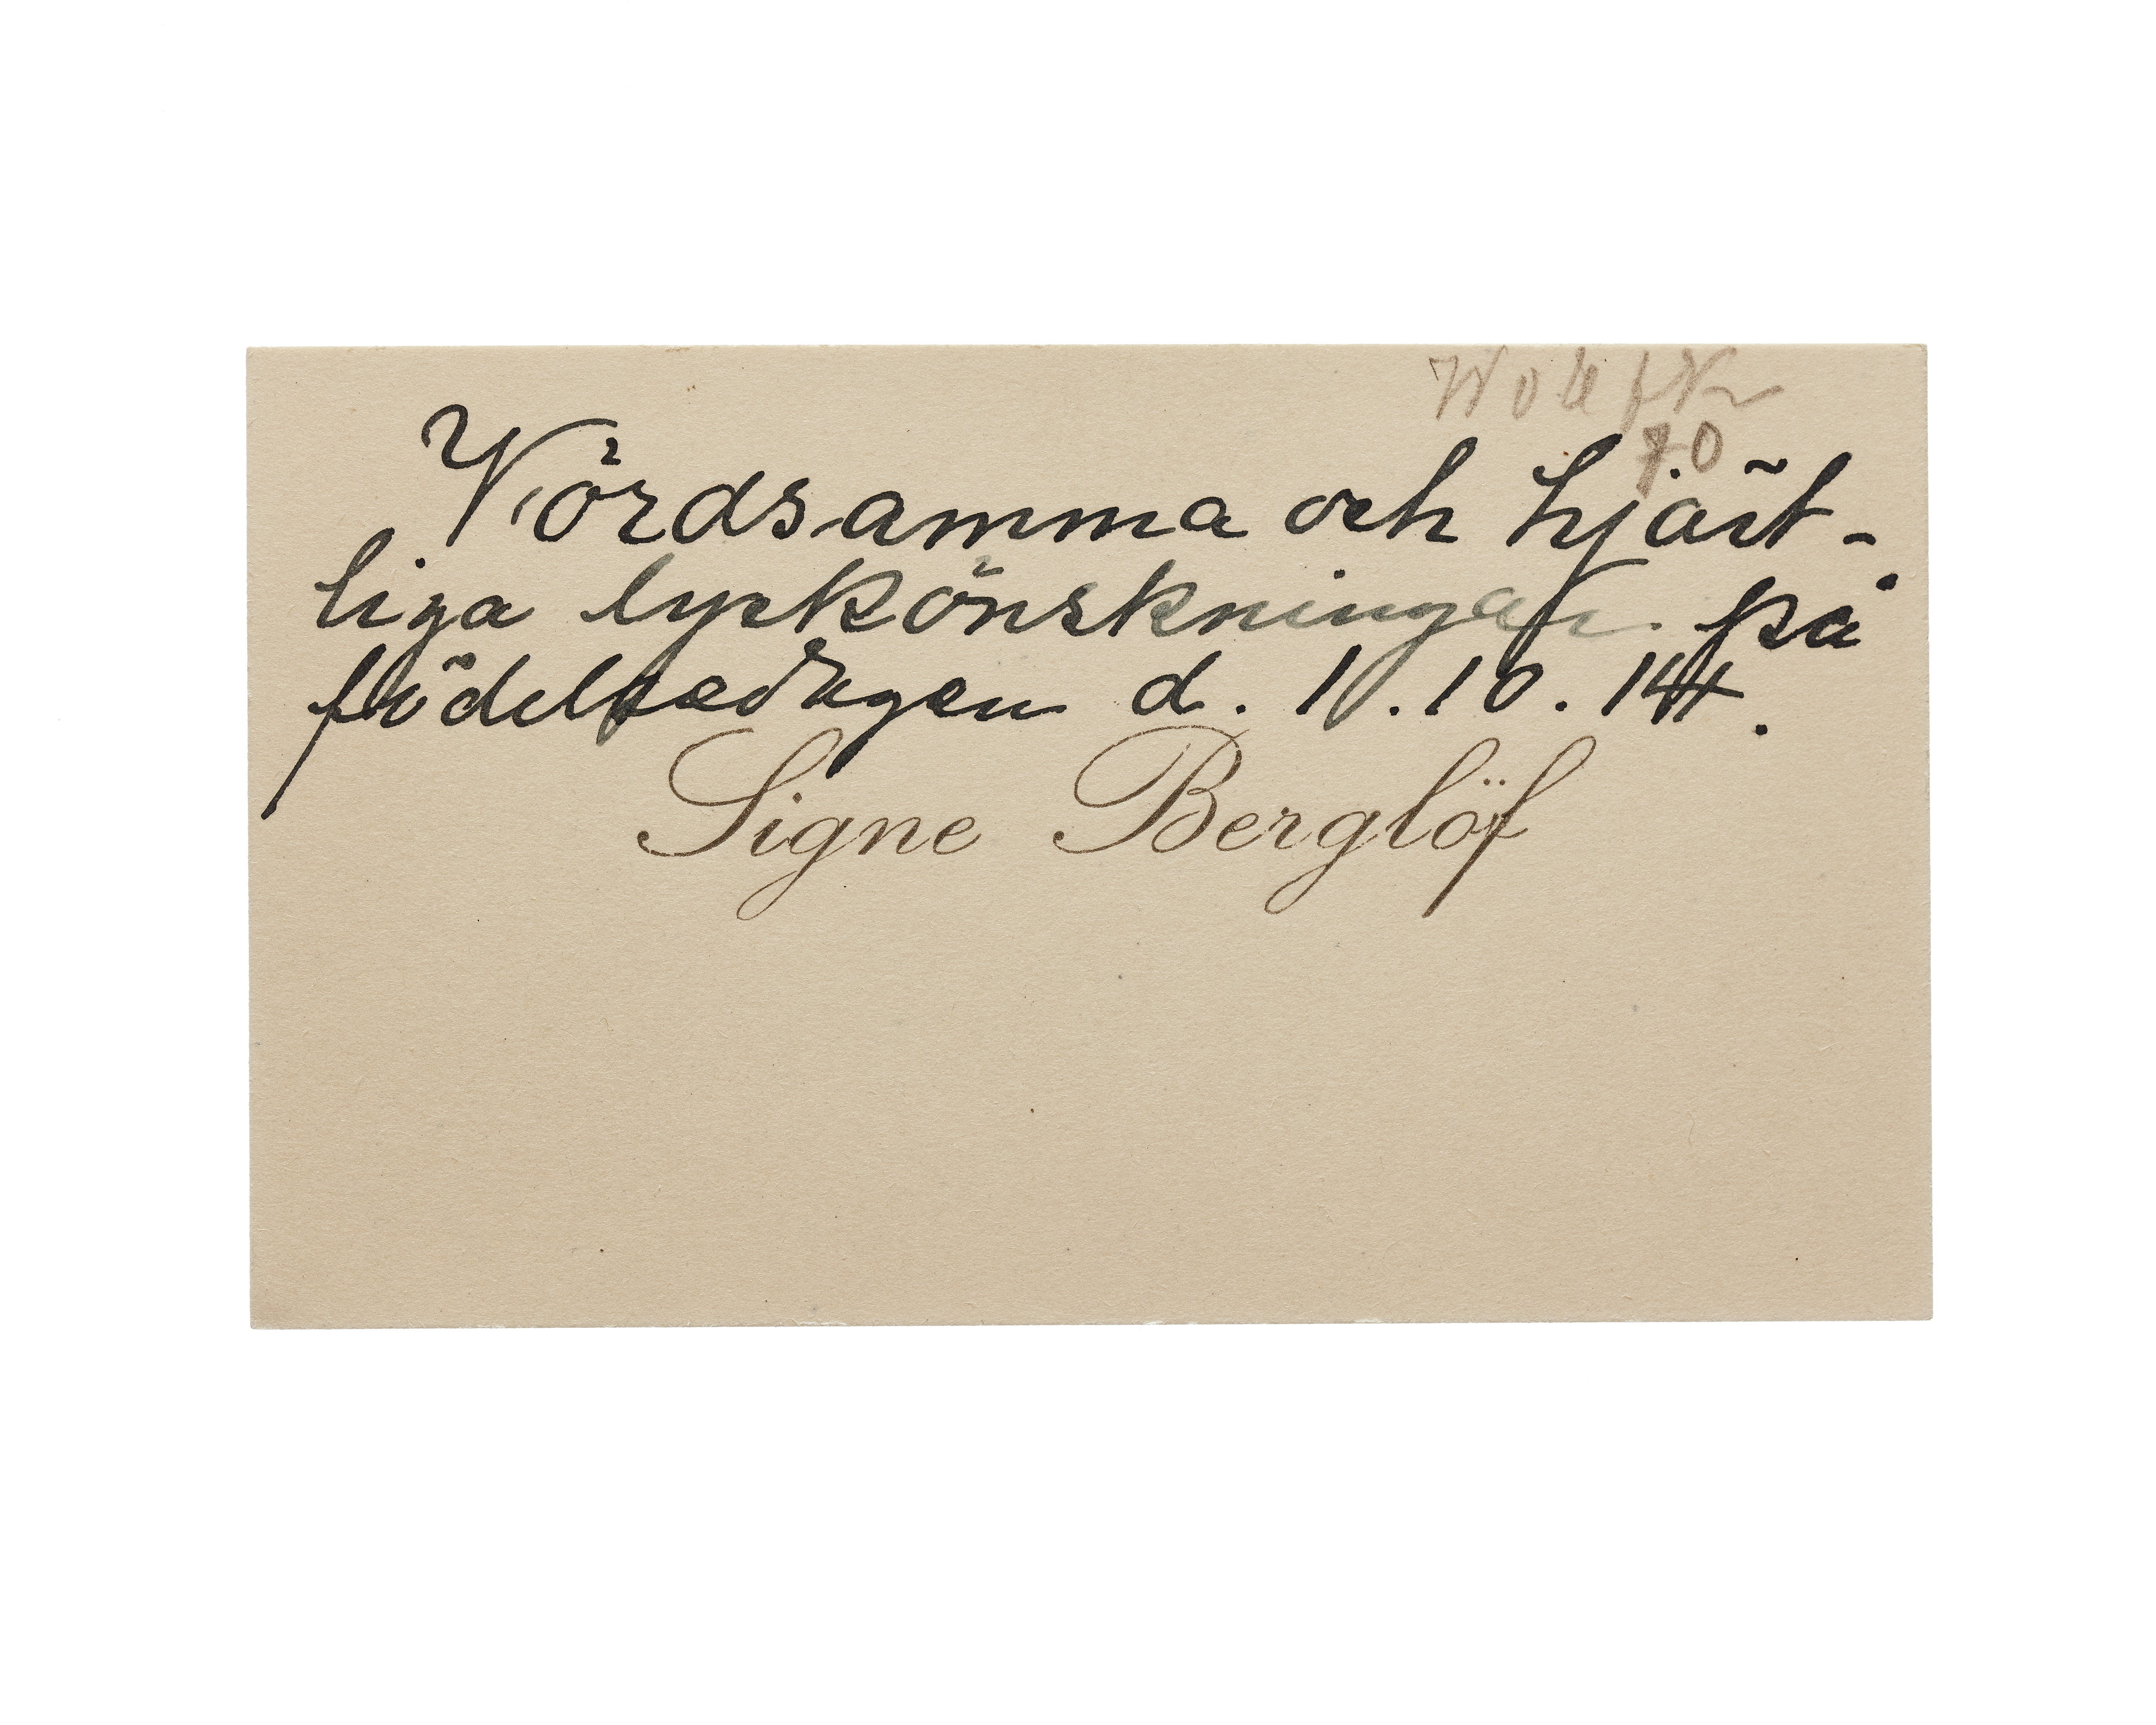 70
Vördsamma och hjärt-
liga lyckönskningar på
födelsedagen d. 1.10.14.
Signe Berglöf